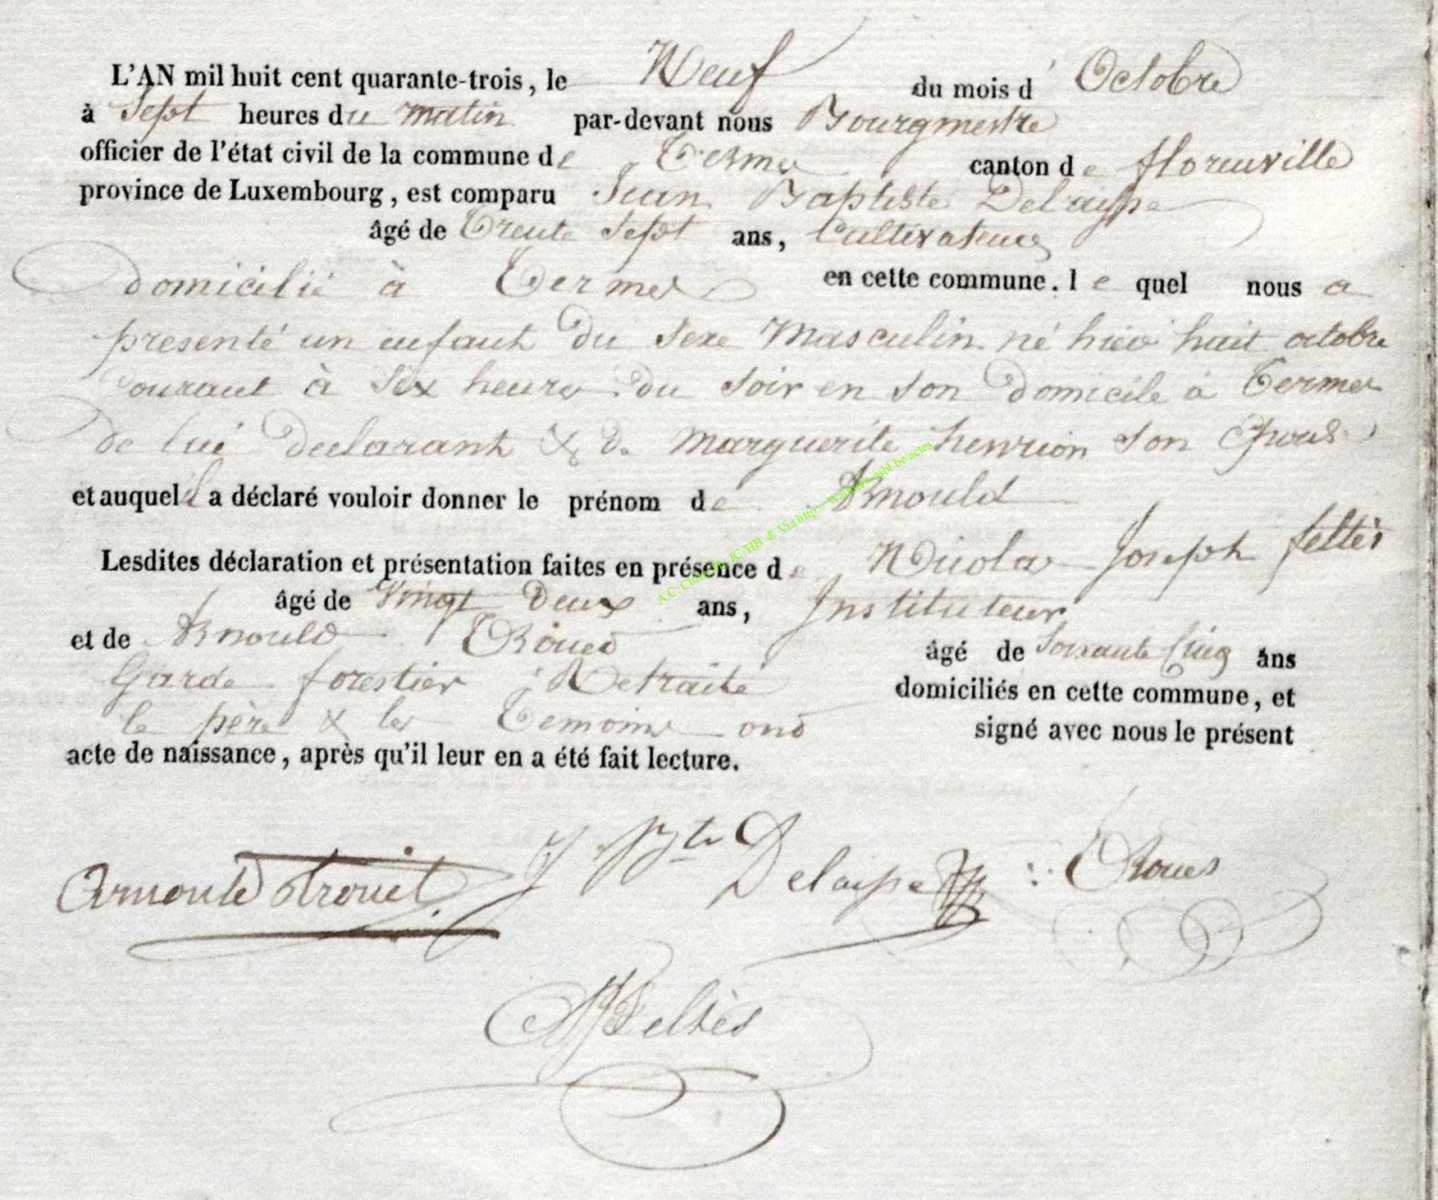 L'AN mil huit cent quarante-trois, le Neuf du mois d' Octobre
à Sept heures du matin par-devant nous Bourgmestre
officier de l'état civil de la commune de Termes canton de florenville
province de Luxembourg, est comparu Jean Baptiste Delaisse
âgé de Trente Sept ans, Cultivateur
domicilié à Termes en cette commune. lequel nous a
presenté un enfant du sexe Masculin né hier huit octobre
courant à six heures du soir en son domicile à Termes
de lui declarant & de Marguerite henrion son Epouse
et auquel il a déclaré vouloir donner le prénom de Arnould
Lesdites déclaration et présentation faites en présence de Nicolas Joseph feltès
âgé de Vingt Deux ans, Instituteur
et de Arnould âgé de Soixante Cinq ans
Garde forestier Retraité domiciliés en cette commune, et
le père & les Temoins ont signé avec nous le présent
acte de naissance, après qu'il leur en a été fait lecture.
J Bte Delaisse
NJ Feltès